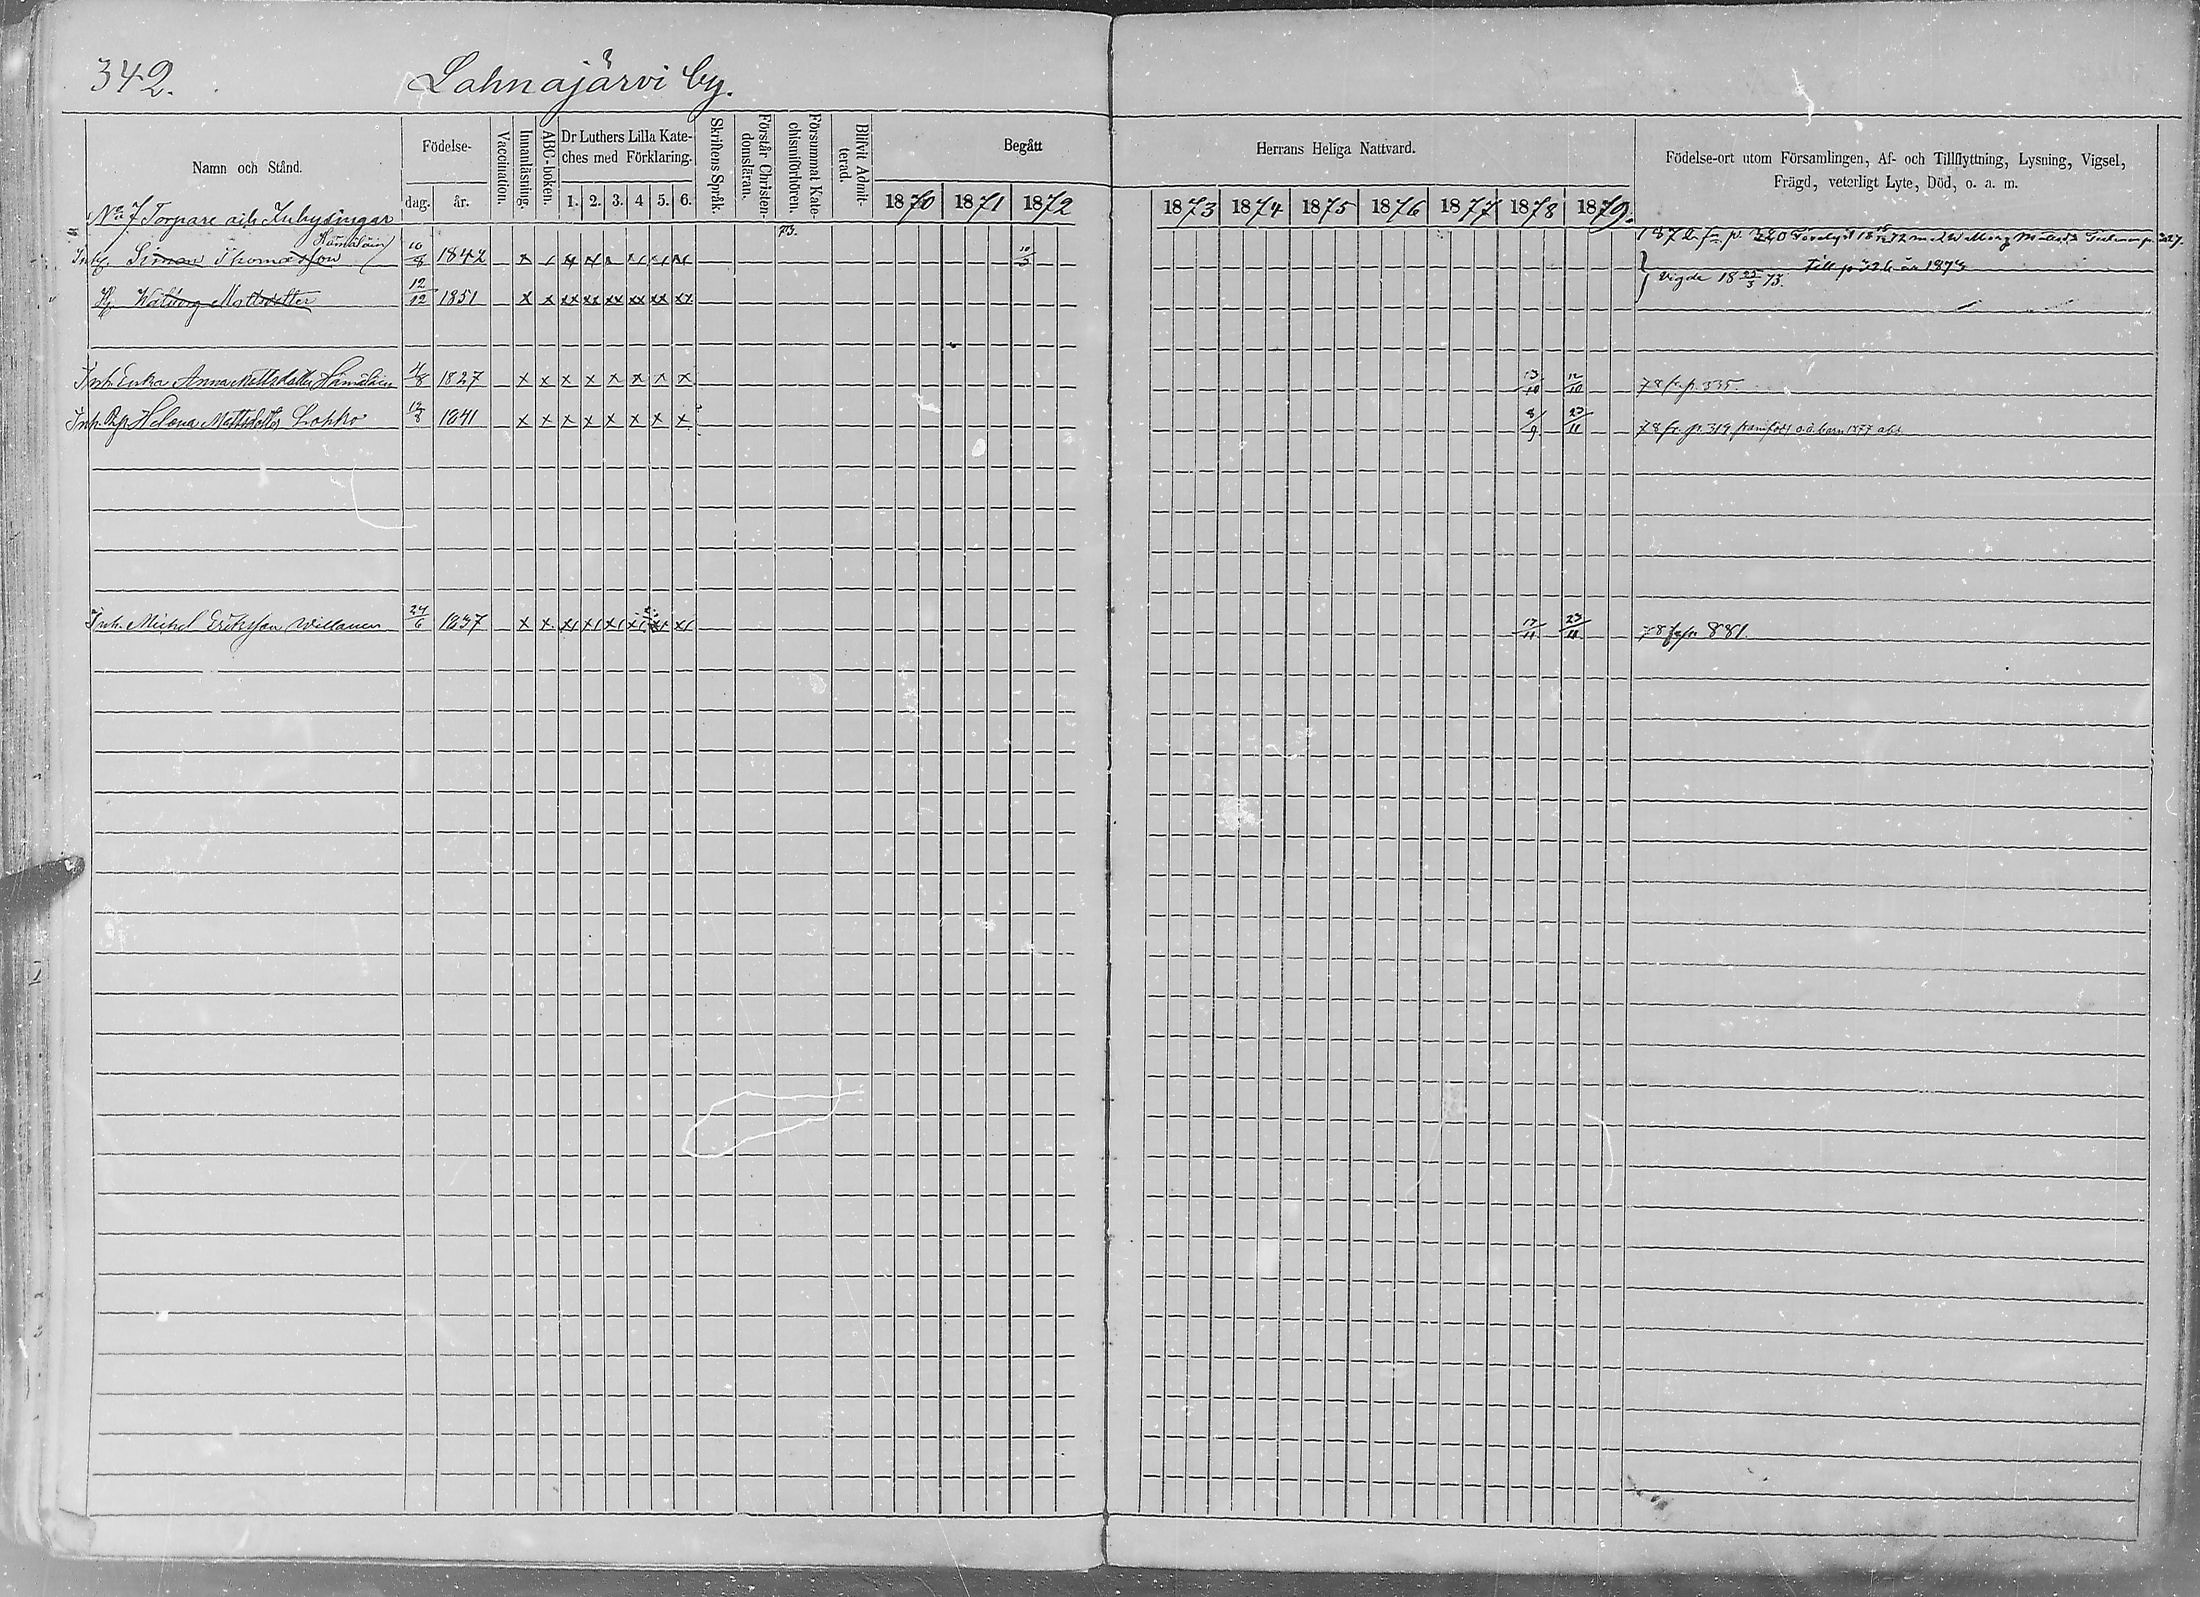 342. Lahnajärvi by.
Namn och Stånd. Födelse- dag. år. Vaccination. Innanläsning. ABC-boken. Dr Luthers Lilla Kateches med Förklaring. 1. 2. 3. 4 5. 6. Skriftens Språk. Förstår Christendomsläran. Försummat Katechismiförhören. Blifvit Admitterad. Begått Herrans Heliga Nattvard. Födelse-ort utom Församlingen, Af- och Tillflyttning, Lysning, Vigsel, Frägd, veterligt Lyte, Död, o. a. m.
1870 1871 1872 1873 1874 1875 1876 1877 1878 1879.
No 7 Torpare och Inhysingar
73.
Hämäläin
Simon Thomasson 10/8 1842 x x x x x x x x 10/3
Till p 326 år 1873
Hu Walborg Mattsdotter 12/12 1851 x x xx xx xx xx xx xx Vigde 18 25/5 73.
Inh. Enka Anna Mattsdotter Hämäläin 1827 x x x x x x x x 13/10 12/10 78 fr. p. 335
Inh. Helena Mattsdotter Lohko 1841 x x x x x x x x 8/9 23/11 78 fr. p. 319 framfödt o.ä. barn 1877
Inh. Michel Eriksson Willanen 24/6 1837 x x x x x x x x 17/11 23/11 78 fr p 881